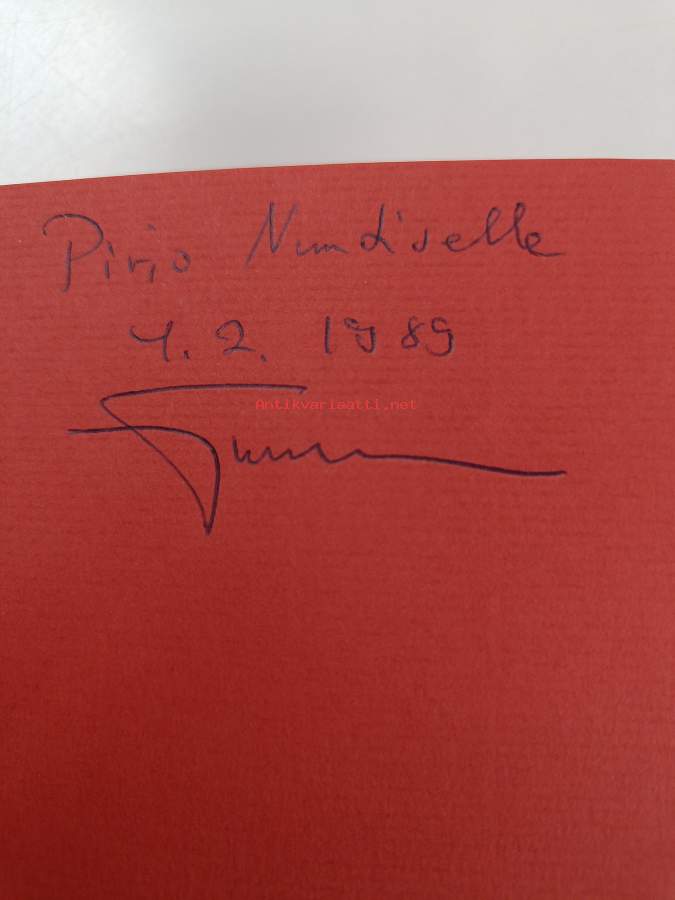 Pirjo Nundiselle
4.2. 1989
Antikvariaatti.net